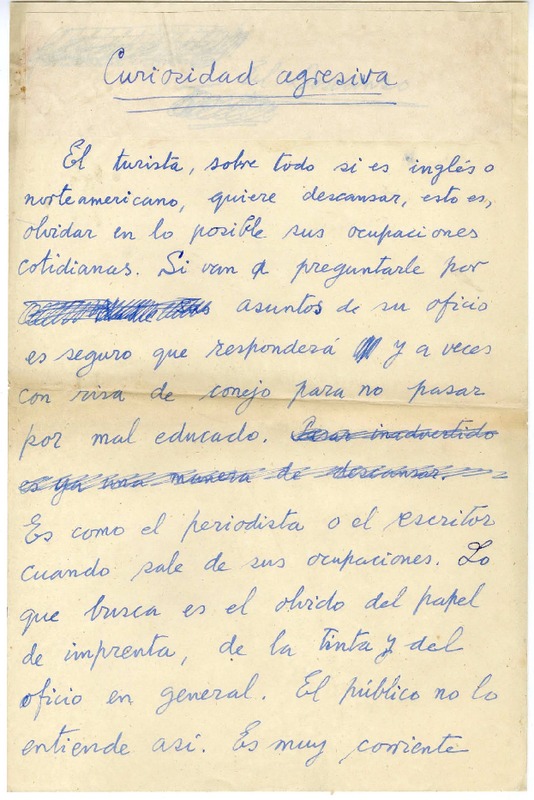 Curiosidad agresiva
El turista, sobre todo si es inglés o
norteamericano, quiere descansar, esto es,
olvidar en lo posible sus ocupaciones
cotidianas. Si van a preguntarle por
asuntos de su oficio
es seguro que responderá y a veces
con risa de conejo para no pasar
por mal educado. Pasar inadvertido
es ya una manera de descansar.
Es como el periodista o el escritor
cuando sale de sus ocupaciones. Lo
que busca es el olvido del papel
de imprenta, de la tinta y del
oficio en general. El público no lo
entiende así. Es muy corriente